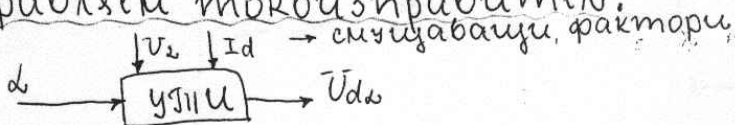 равляем токоизправител.
↓U₂ ↓Id → смущаващи фактори
α → УТПИ → Ūdα